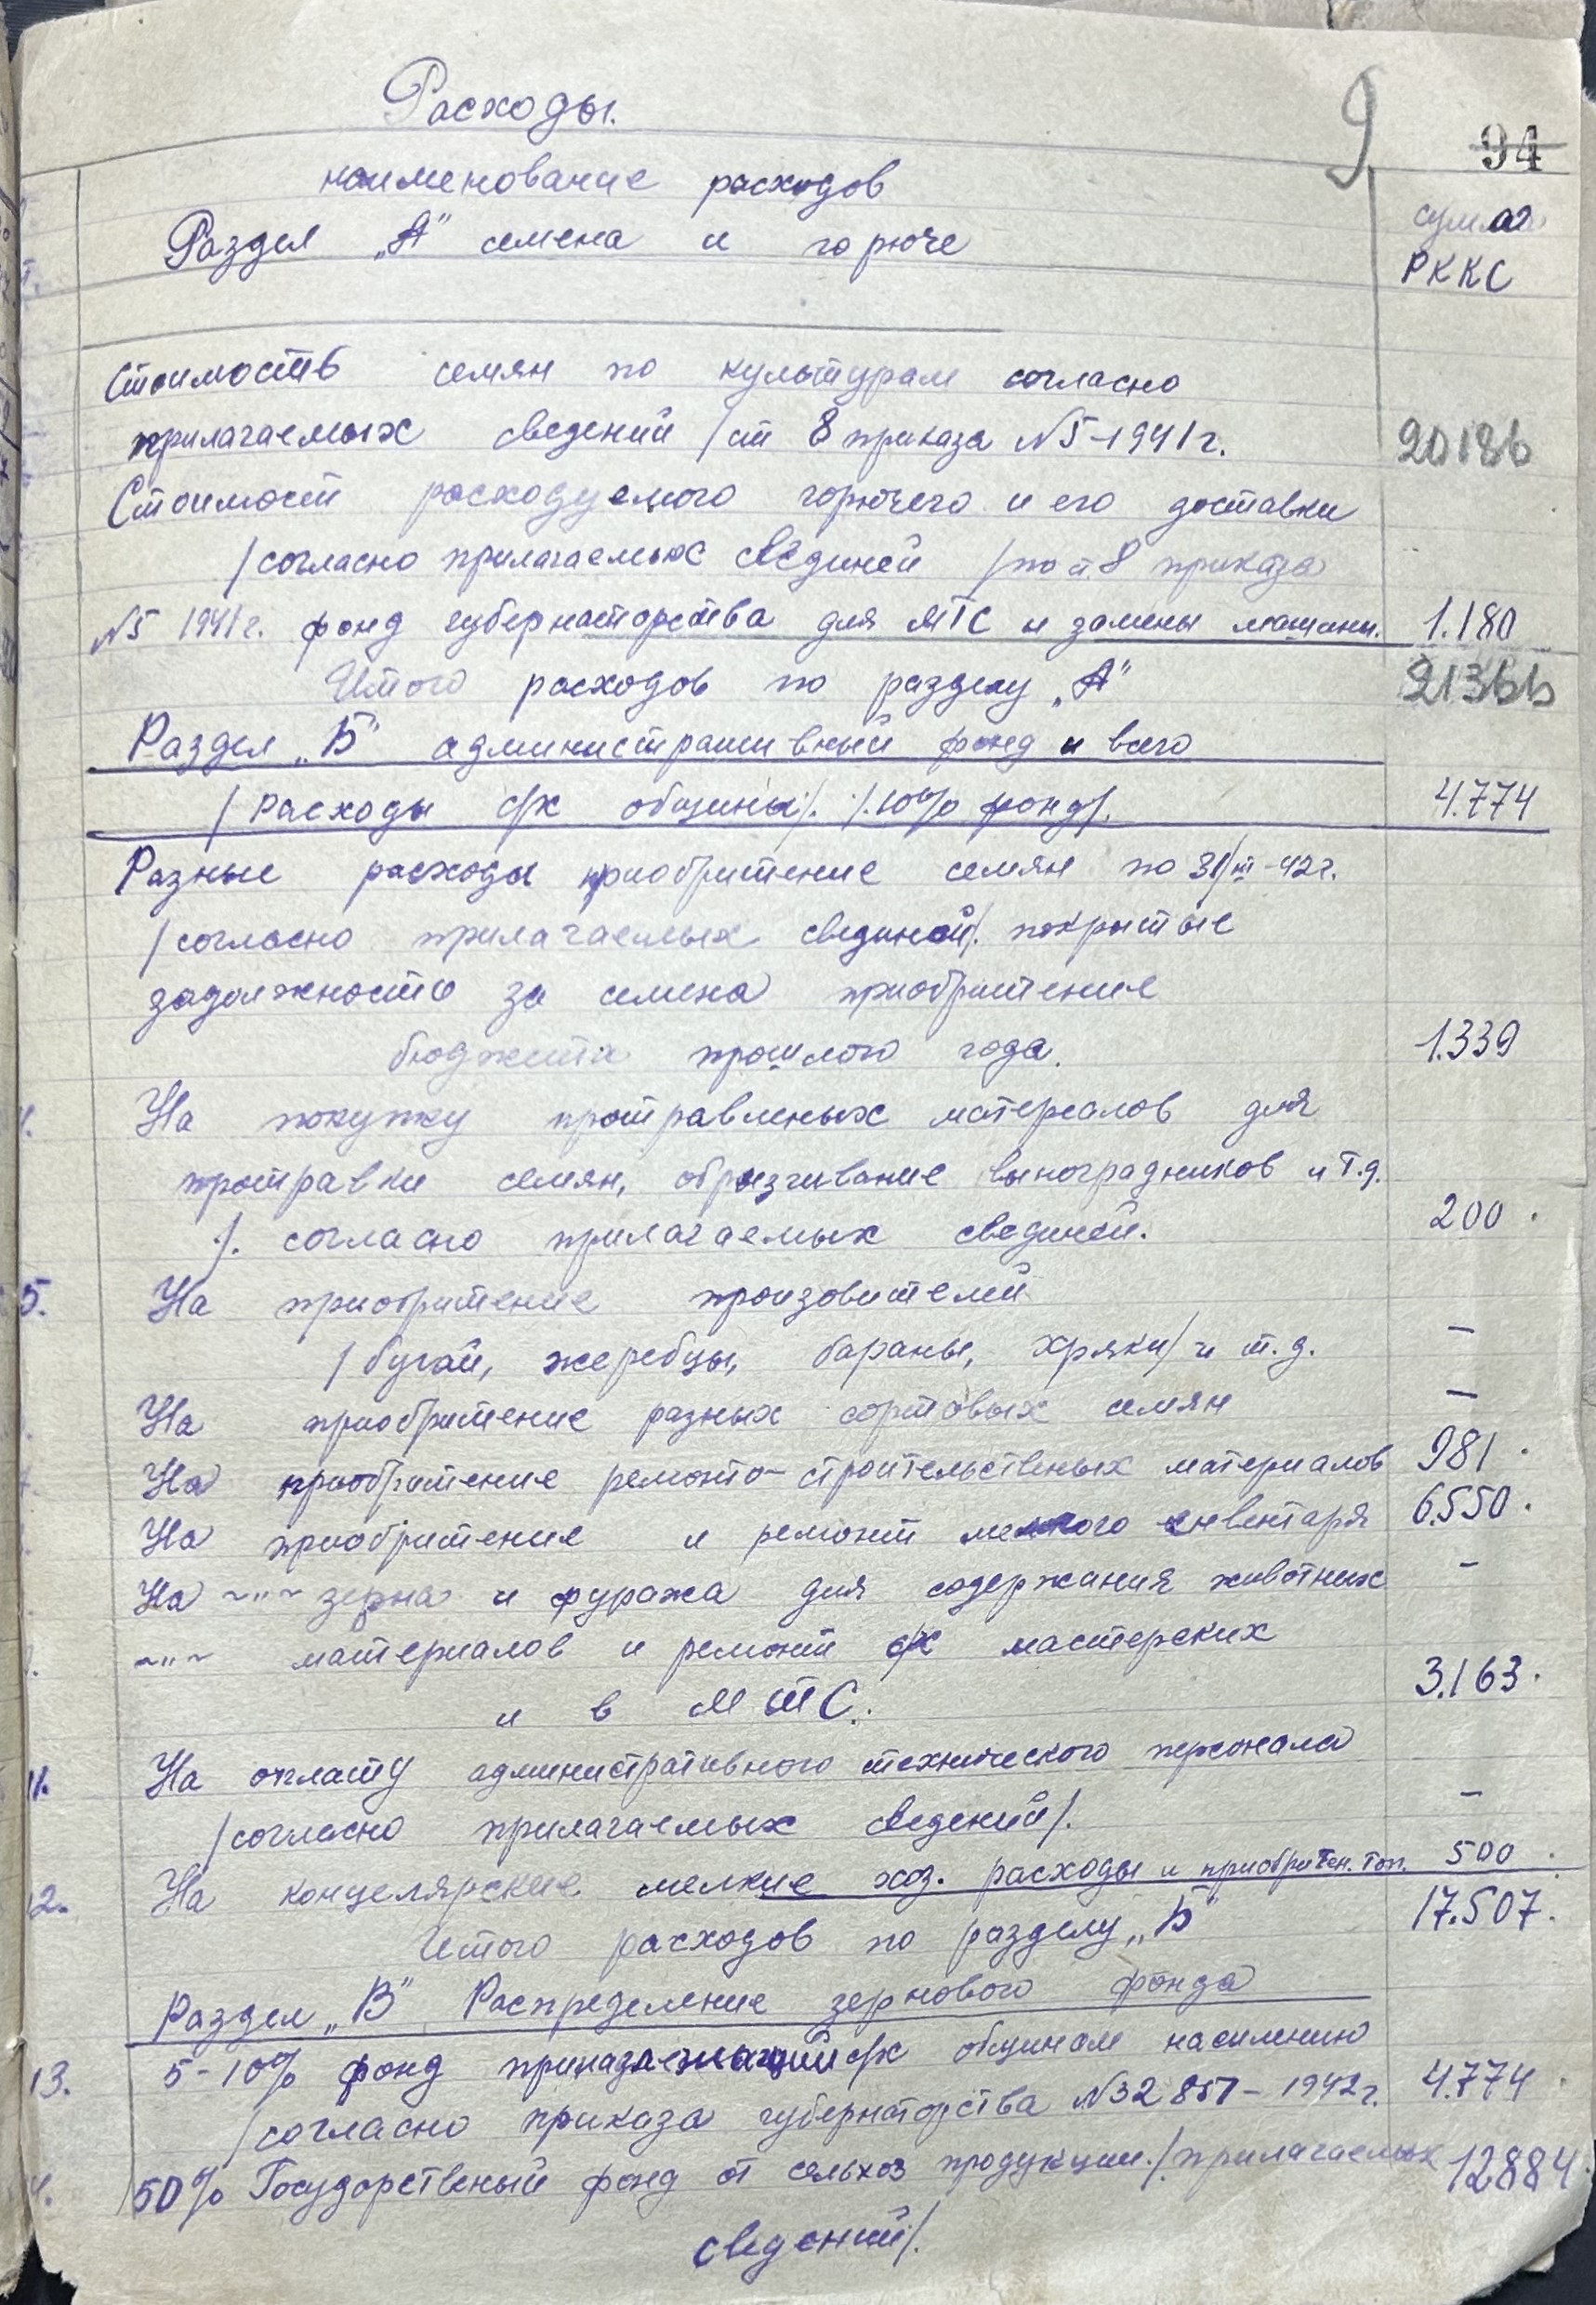 Расходы.
9
94
наименование расходов
сумма
Раздел „А" семена и горюче
РККС
Стоимость семян по культурам согласно
прилагаемых сведений /ст 8 приказа №5-1941г.
20186
Стоимост расходуемого горючего и его доставки
/согласно прилагаемых свединей /по ст 8 приказа
№5 1941г. фонд губернаторства для МТС и замены машин.
1.180
Итого расходов по разделу „А"
21366
Раздел „Б" административный фонд и всего
/Расходы с/х общины/. /.10% фонд/.
4.774
Разные расходы приобритение семян по 31/III-42г.
/согласно прилагаемых свединей/. покрытые
задолжностью за семена приобритение
бюджета прошлого года.
1.339
На покупку протравленых материалов для
протравки семян, обрызгивание виноградников и т.д.
/. согласно прилагаемых свединей.
200.
5. На приобритение произовителей
/бугаи, жеребцы, бараны, хряки/ и т.д. –
На приобритение разных сортовых семян –
На приобритение ремонто-строительственых материалов 981.
На приобритение и ремонт мелкого инвентаря 6.550.
На ~"~ зерна и фуража для содержания животних –
~"~ материалов и ремонт с/х мастерских
и в МТС.
3.163.
11. На оплату административного технического персонала
/согласно прилагаемых сведений/. –
12. На концелярские мелкие хоз. расходы и приобритен. топ. 500.
Итого расходов по разделу „Б" 17.507.
Раздел „В" Распределение зернового фонда
13. 5-10% фонд принадлежащий с/х общинам насилению
/согласно приказа губернаторства №32 857-1942г. 4.774.
50% Государственый фонд от сельхоз продукции./прилагаемых 12884.
сведений/.